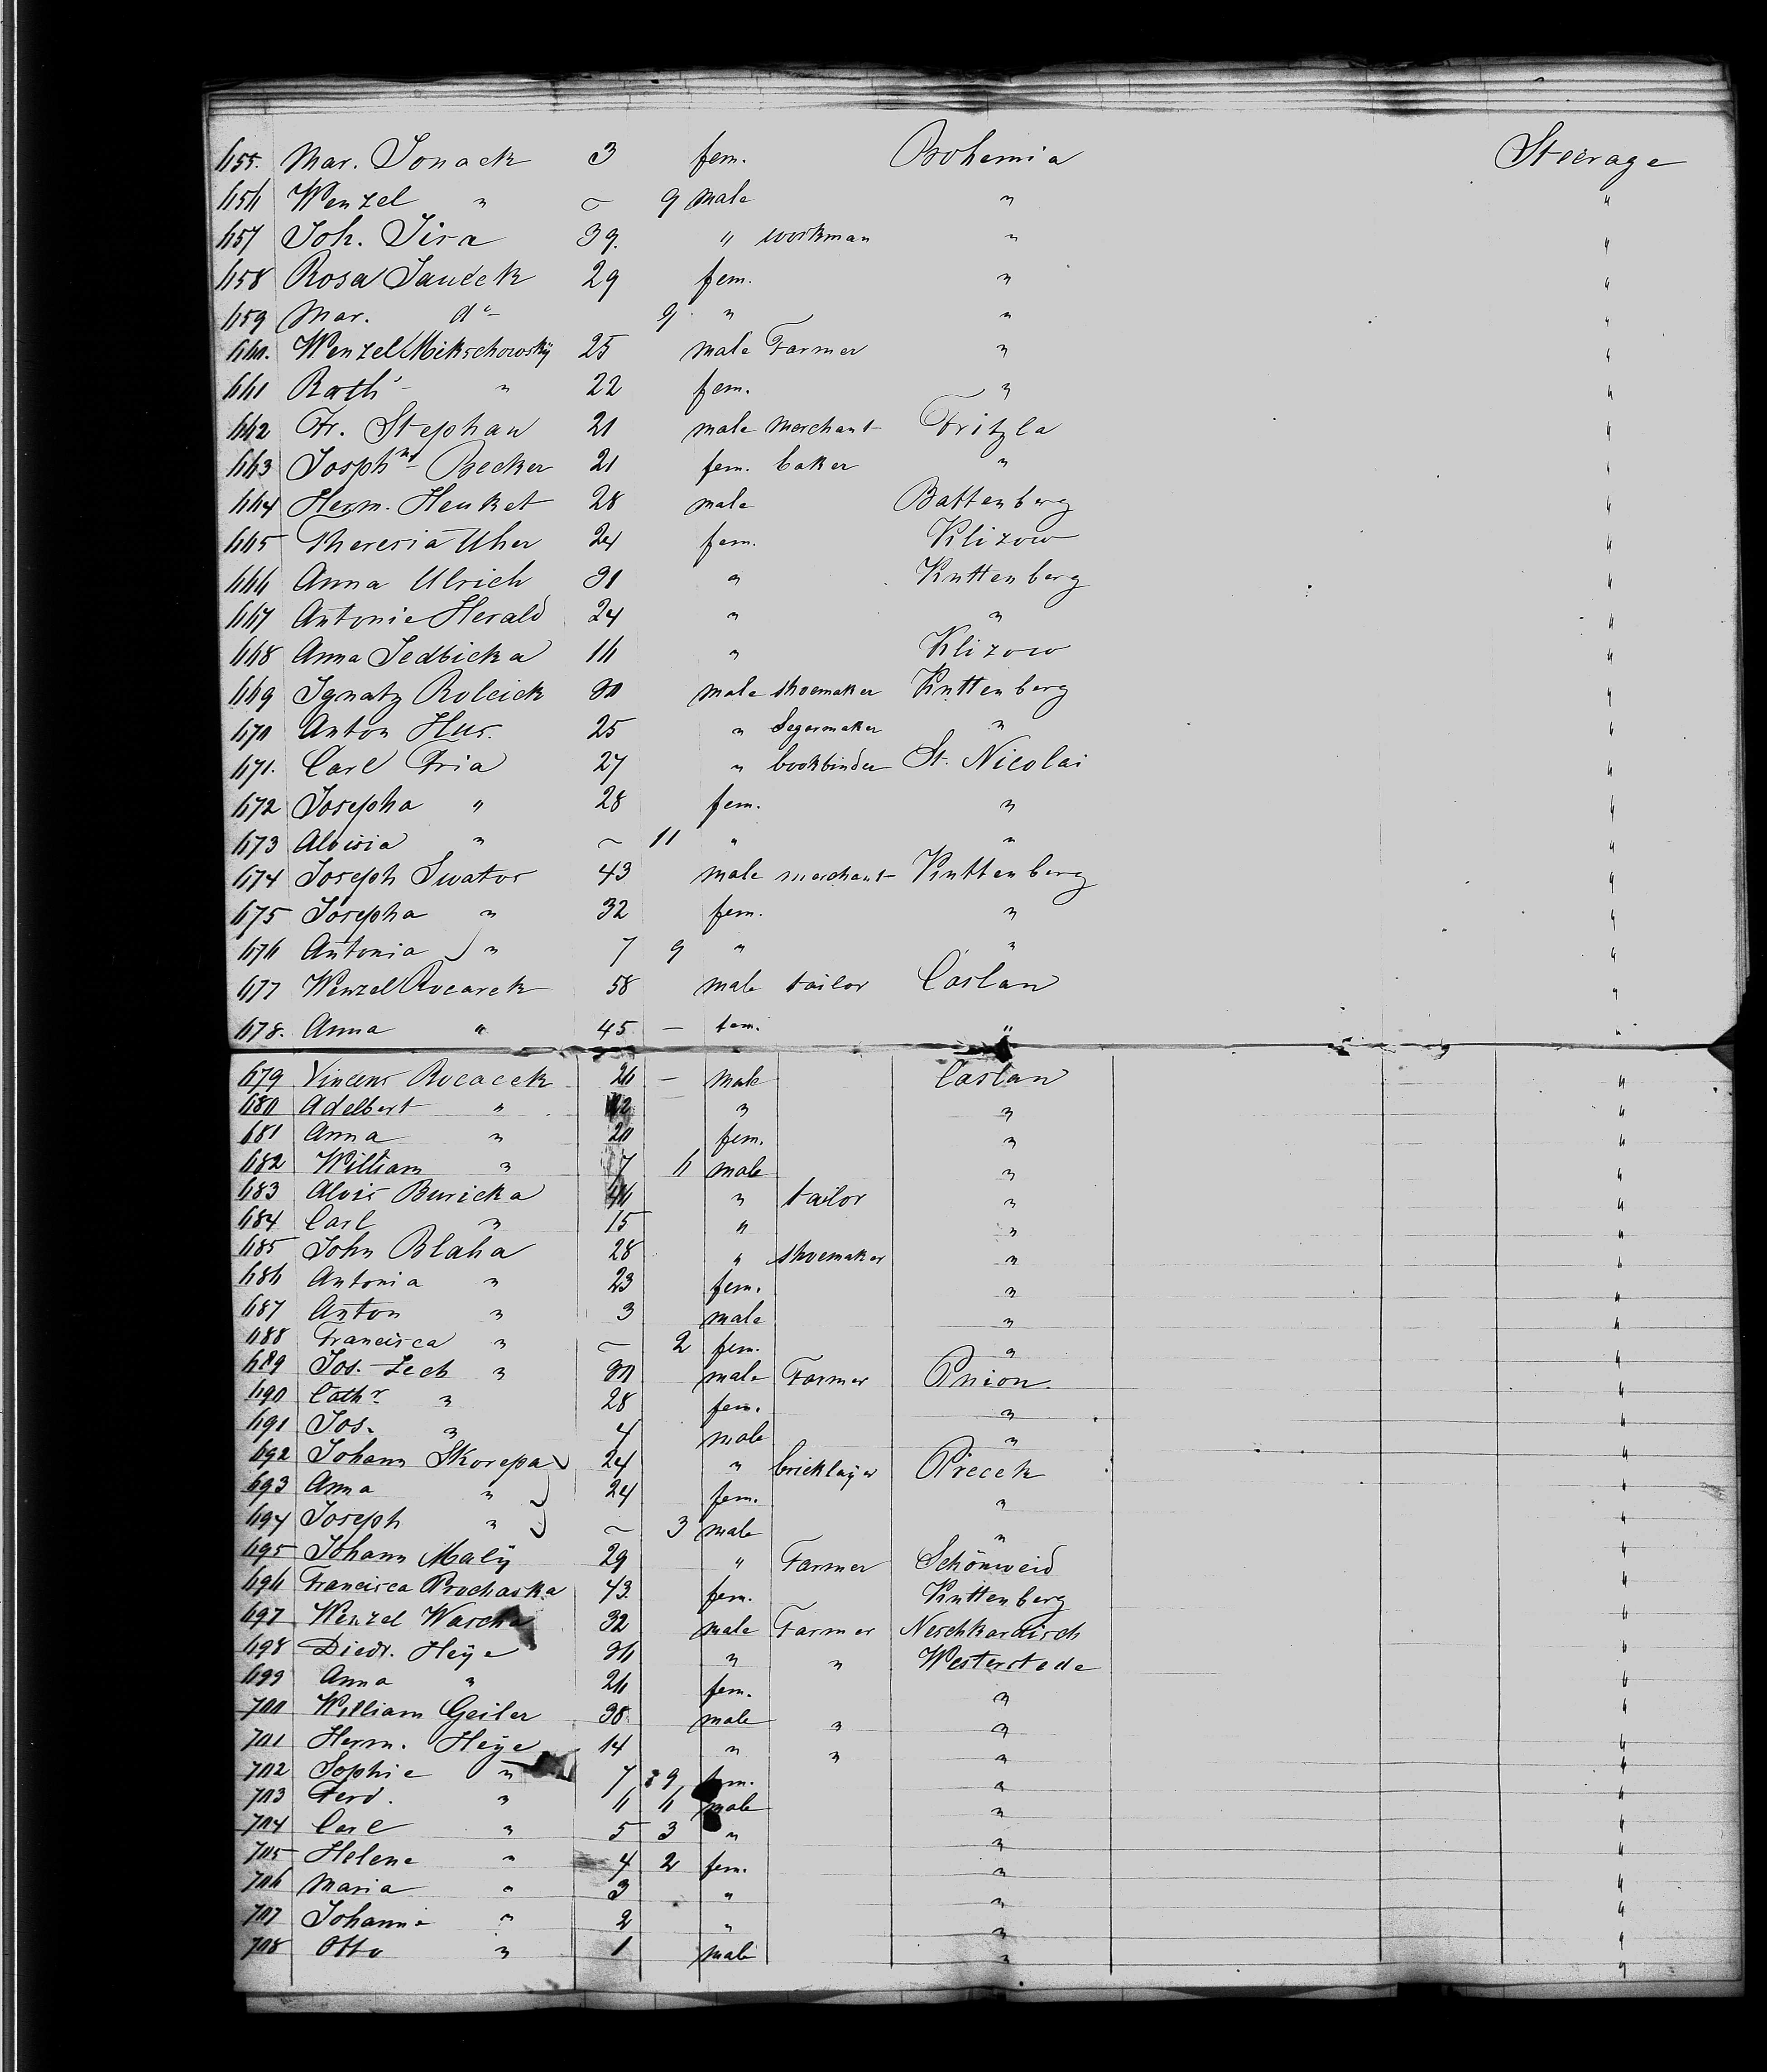 655. Mar. Jonack 3 fem. Bohemia Steerage
656 Wenzel " — 9 male " "
657 Joh. Jira 39. " workman " "
658 Rosa Janeck 29 fem. " "
659 Mar. do 9 " " "
660. Wenzel Mikschowský 25 male Farmer " "
661 Kath. " 22 fem. " "
662 Fr. Stephan 21 male merchant Fritzla "
663 Josphne Becker 21 fem. baker " "
664 Herm. Henket 28 male Battenberg "
665 Theresia Uher 24 fem. Klizow "
666 Anna Ulrich 31 " Kuttenberg "
667 Antonie Herald 24 " " "
668 Anna Sedbicka 16 " Klizow "
669 Ignatz Rolcick 30 male shoemaker Kuttenberg "
670 Anton Hus. 25 " Segarmaker " "
671. Carl Fria 27 " bookbinder St. Nicolai "
672 Josepha " 28 fem. " "
673 Aloisia " — 11 " " "
674 Joseph Swator 43 male merchant Kuttenberg "
675 Josepha " 32 fem. " "
676 Antonia " 7 9 " " "
677 Wenzel Rocarek 58 male tailor Caslau "
678. Anna " 45 — fem. " "
679 Vincens Rocacek 26 — male Caslau "
680 Adelbert " " " "
681 Anna " 20 fem. " "
682 William " 7 6 male " "
683 Alois Buricka 46 " tailor " "
684 Carl " 15 " " "
685 John Blaha 28 " shoemaker " "
686 Antonia " 23 fem. " "
687 Anton " 3 male " "
688 Francisca " — 2 fem. " "
689 Jos. Zech " 30 male Farmer Pnion. "
690 Cathr. " 28 fem. " "
691 Jos. " 4 male " "
692 Johann Skorepa 24 " bricklayer Pirecek "
693 Anna " 24 fem. " "
694 Joseph " — 3 male " "
695 Johann Malÿ 29 " Farmer Schönweid "
696 Francisca Prochaska 43. fem. Kuttenberg "
697 Wenzel Wascha 32 male Farmer Neschkardisch "
698 Diedr. Heÿe 36 " " Westerstede "
699 Anna " 26 fem. " "
700 William Geiler 38 male " " "
701 Herm. Heÿe 14 " " " "
702 Sophie " 7 9 fem. " "
703 Ferd. " 6 6 male " "
704 Carl " 5 3 " " "
705 Helene " 4 2 fem. " "
706 Maria " 3 " " "
707 Johanne " 2 " " "
708 Otto " 1 male " "